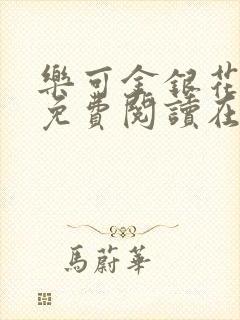 樂可金銀花
免費閱讀在
馬蔚華